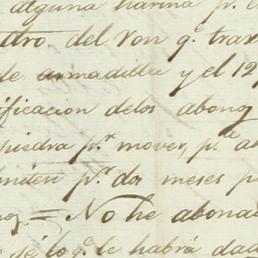 alguna harina p.r
del Ron q.e trax
de armadilla y el 12
ificacion delos abono
piedra p.r mover, p.a a
miten p.r dos meses p
= No he abona
se lo q.e le habrá dad